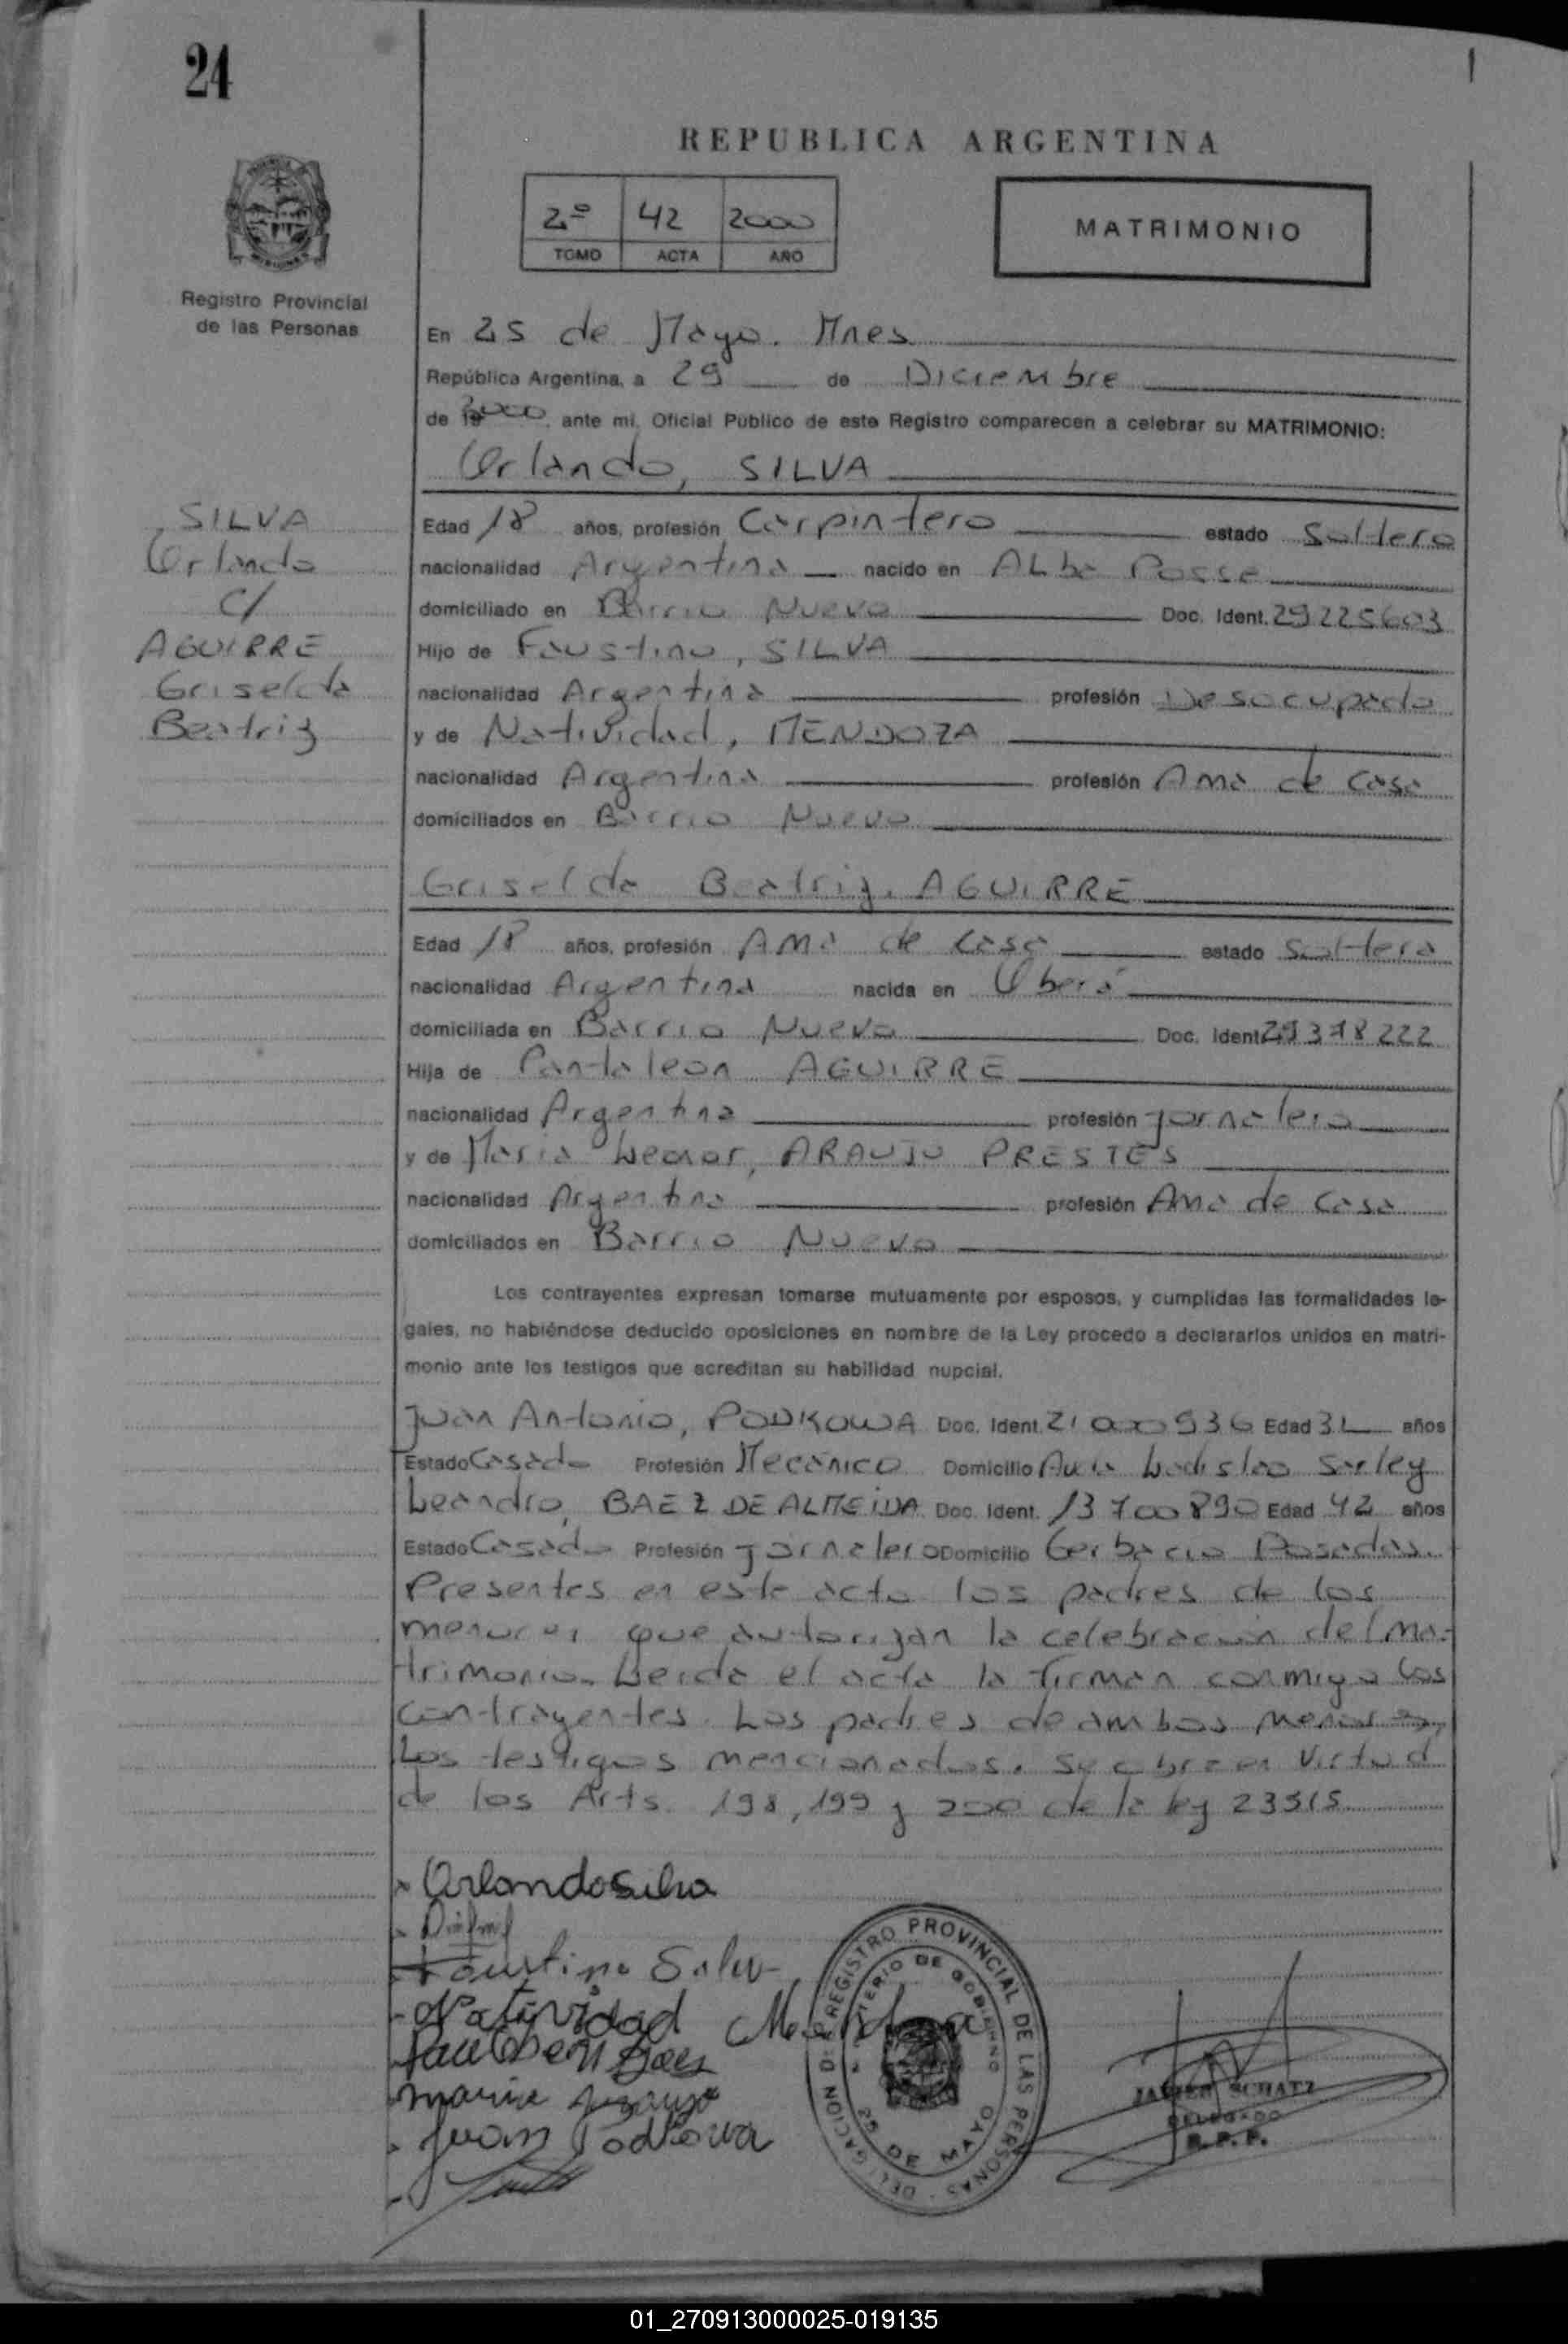 24
REPUBLICA ARGENTINA
2º 42 2000
TOMO ACTA AÑO
MATRIMONIO
Registro Provincial
de las Personas
En 25 de Mayo. Mnes
República Argentina, a 29 de Diciembre
de 2000, ante mi, Oficial Público de este Registro comparecen a celebrar su MATRIMONIO:
Orlando, SILVA
SILVA
Orlando
C/
AGUIRRE
Griselda
Beatriz
Edad 18 años, profesión Carpintero estado Soltero
nacionalidad Argentina nacido en ALba Posse
domiciliado en Barrio Nuevo Doc. Ident. 29225603
Hijo de Faustino, SILVA
nacionalidad Argentina profesión Desocupado
y de Natividad, MENDOZA
nacionalidad Argentina profesión Ama de casa
domiciliados en Barrio Nuevo
Griselda Beatriz, AGUIRRE
Edad 18 años, profesión Ama de casa estado Soltera
nacionalidad Argentina nacida en Oberá
domiciliada en Barrio Nuevo Doc. Ident. 29378222
Hija de Pantaleon AGUIRRE
nacionalidad Argentina profesión Jornalero
y de Maria Leonor, ARAUJO PRESTES
nacionalidad Argentina profesión Ama de casa
domiciliados en Barrio Nuevo
Los contrayentes expresan tomarse mutuamente por esposos, y cumplidas las formalidades le-
gales, no habiéndose deducido oposiciones en nombre de la Ley procedo a declararlos unidos en matri-
monio ante los testigos que acreditan su habilidad nupcial.
Juan Antonio, PODKOWA Doc. Ident. 21000936 Edad 31 años
Estado Casado Profesión Mecánico Domicilio Avda Ladislao Sarley
Leandro, BAEZ DE ALMEIDA Doc. Ident. 13700890 Edad 42 años
Estado Casado Profesión Jornalero Domicilio Gerbacio Posadas.
Presentes en este acto los padres de los
menores, que autorizan la celebración del ma-
trimonio. Leida el acta la firman conmigo los
contrayentes. Los padres de ambos menores,
Los testigos mencionados. Se labra en virtud
de los Arts. 198, 199 y 200 de la ley 23515
Orlando Silva
Faustino Silva
Natividad Mendoza
Maria Araujo
Juan Podkowa
REGISTRO PROVINCIAL DE LAS PERSONAS - DELEGACION
MINISTERIO DE GOBIERNO
25 DE MAYO
JAVIER SCHATZ
DELEGADO
R. P. P.
01_270913000025-019135